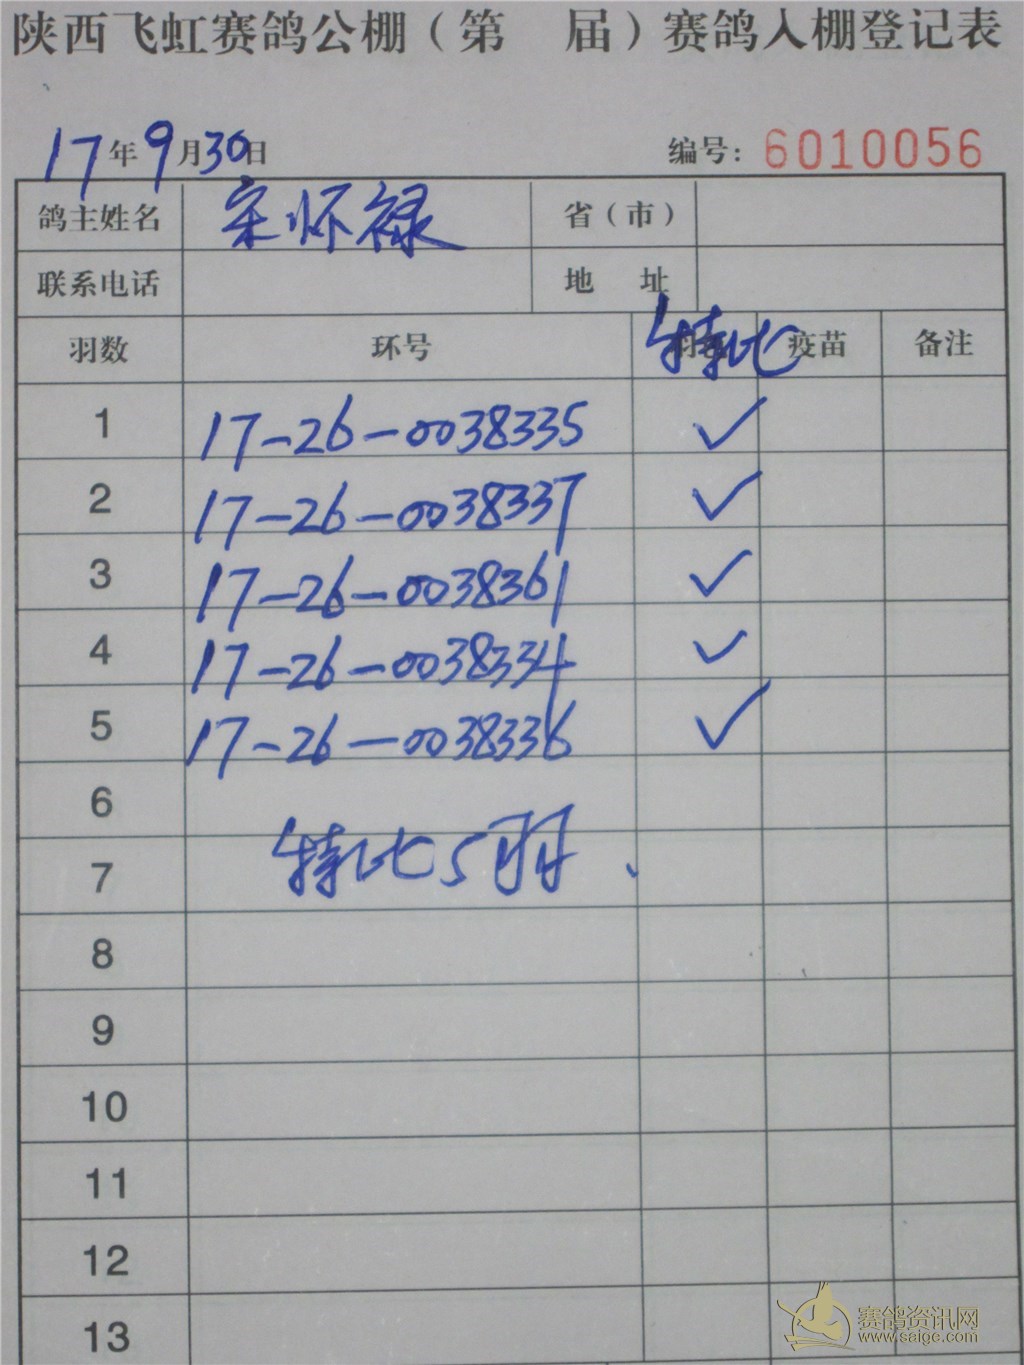 陕西飞虹赛鸽公棚（第 届）赛鸽入棚登记表
17年9月30日 编号：6010056
鸽主姓名 宋怀禄 省（市）
联系电话 地 址
羽数 环号 特比 疫苗 备注
1 17-26-0038335 ✓
2 17-26-0038337 ✓
3 17-26-0038361 ✓
4 17-26-0038334 ✓
5 17-26-0038336 ✓
6
特比5羽、
7
8
9
10
11
12
13
赛鸽资讯网
www.saige.com